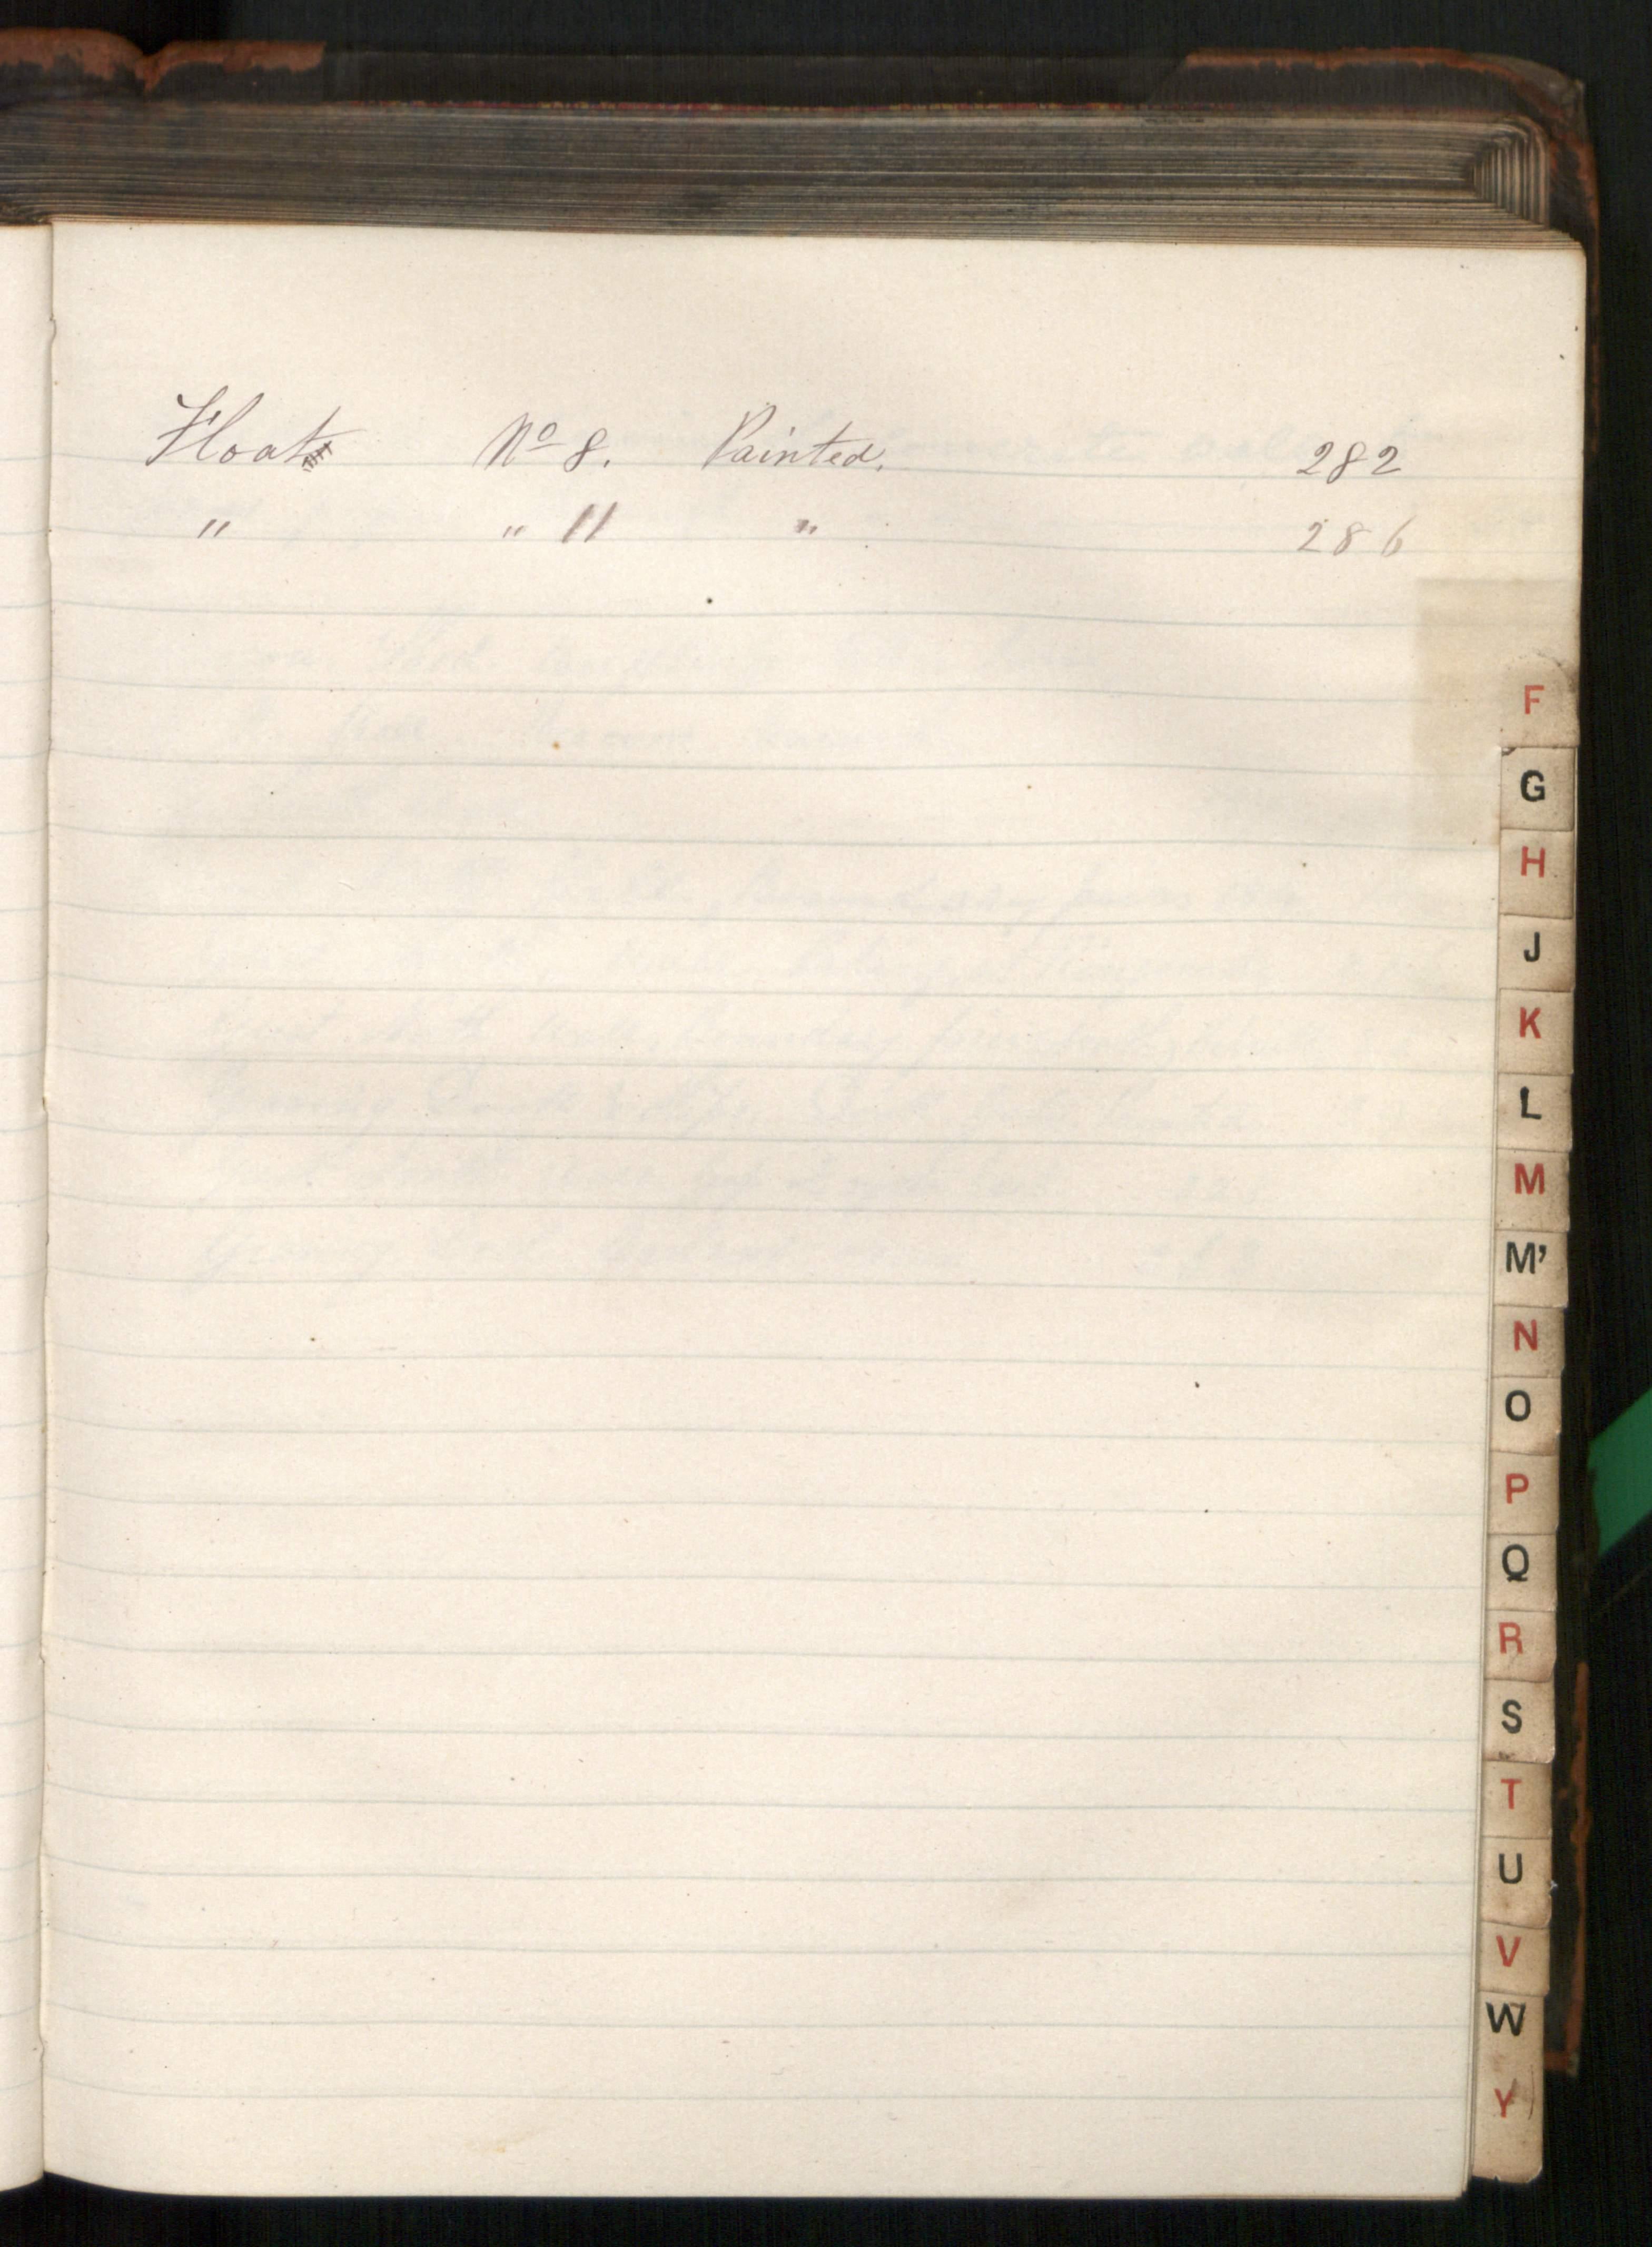 Float Nº 8. Painted. 282
" " 11 " 286
F
G
H
J
K
L
M
M'
N
O
P
Q
R
S
T
U
V
W
Y